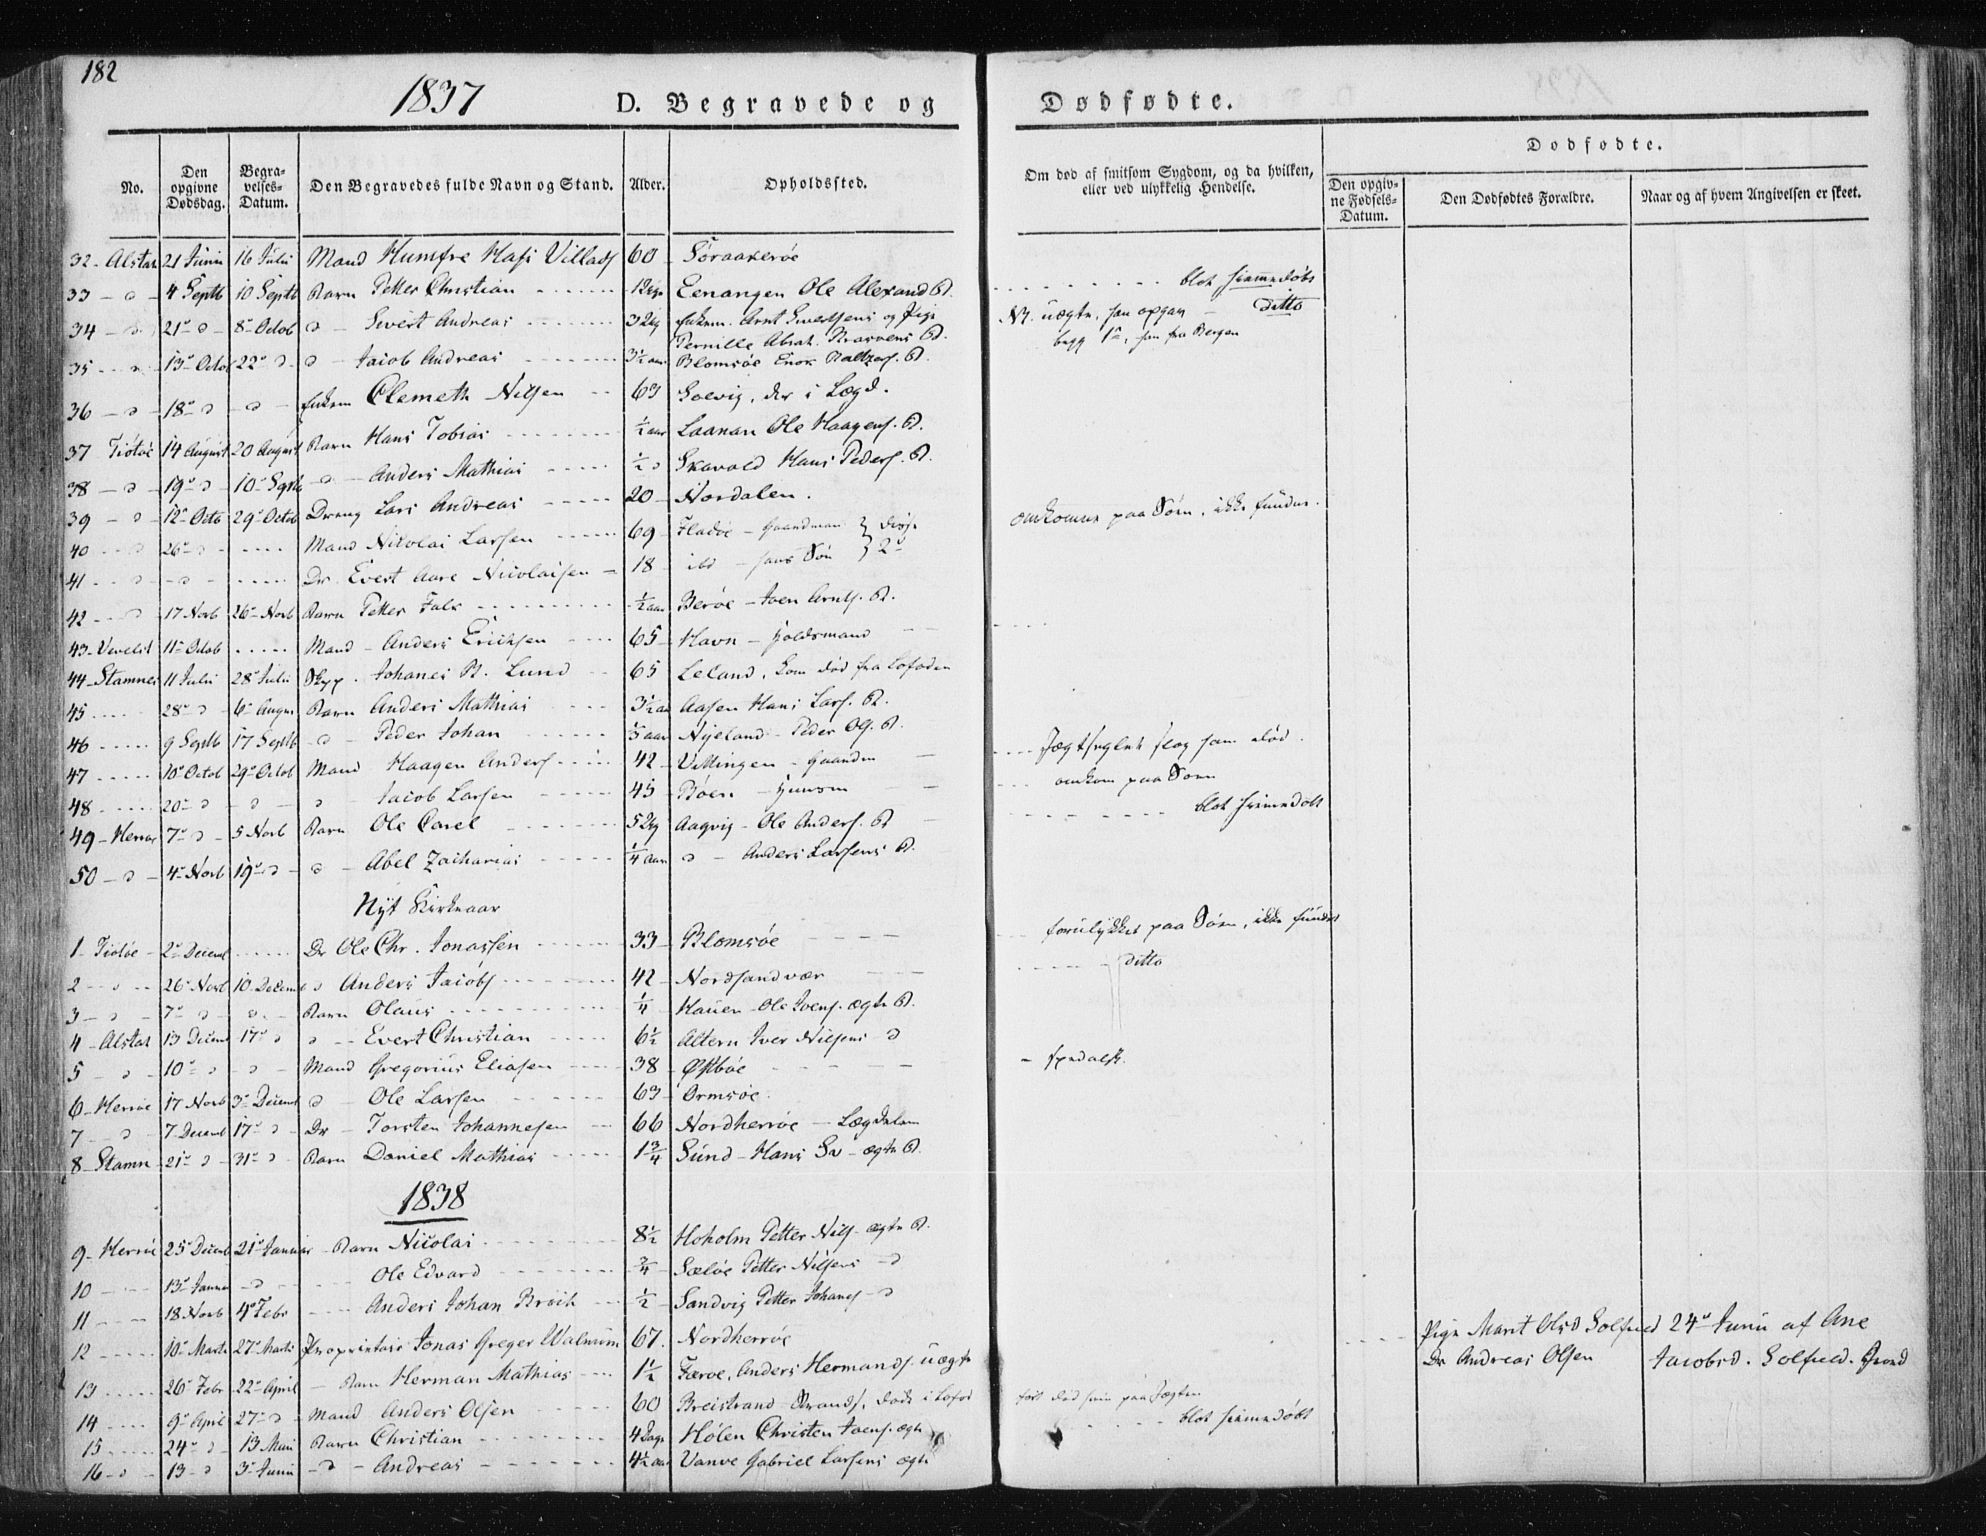 182
1837 D. Begravede og Dødfødte.
No. Den opgivne Dødsdag. Begravelses-Datum. Den Begravedes fulde Navn og Stand. Alder. Opholdssted. Om død af smitsom Sygdom, og da hvilken, eller ved ulykkelig Hendelse. Dødfødte. Den opgivne Fødsels-Datum. Den Dødfødtes Forældre. Naar og af hvem Angivelsen er skeet.
32 - Alstah 21 Junii 16 Julii Mand Humfre Villads 60 Søraakerøe
33 - d - 4 Septb 10 Septb Barn Petter Christian 12 Ole Alexand B. blot hiemmedøbt
34 - d 21 d 8 Octob d - Sivert Andreas Enkem. Arnt Sivertsens og Pige ditto
Pernille Abrah. B. fra Bergen
35 - d 13 Octob 22 d d - Jacob Andreas 3½ aar Blomsøe Enok Baltzers. B.
36 - d 18 d - d - Enkem Clemeth Nilsen 63 Solvig, der i Lægd.
37 Tiøtøe 14 August 20 August Barn Hans Tobias ½ aar Laanan Ole Haagens. B.
38 - d - 19 d - 10 Septb - d - Anders Mathias ½ d Skavold Hans Peders. B.
39 - d 12 Octb 29 Octob Dreng Lars Andreas 20 Nordalen. omkomne paa Søen, ikke funden.
40 - d 26 d Mand Nicolai Larsen 69 Fladøe - Gaardman
41 - d - d - Dr. Evert Aare Nicolaisen 18 ibd - hans Søn
42 - d 17 Novb 26 Novb Barn Petter Falk ½ aar Berøe - Iven Arnts. B.
43 - Vevelst 11 Octob Mand - Anders Erichsen 65 Havn - Holdsmand
44 - Stamnes 11 Julii 28 Julii Skpp. Johanes B. Lund 65 Leland, kom død fra Lofoden
45 28 d 6 Augus Barn Anders Mathias 3½ aar Aasen Hans Lars. B.
46 9 Septb 17 Septb - d - Peder Johan aar Nyeland - Peder Ols. B.
47 10 Octob 29 Octob Mand Haagen Anders. 42 Villingen - Gaardm Jægtseglet slog ham død.
48 20 d - d - d Jacob Larsen 45 Bøen - Huusm omkom paa Søen
49 - Herrøe 7 d 5 Novb Barn Ole Carel Aagvig - Ole Anders. B blot hiemmedøbt
50 - d - 4 Novb 19 d - d - Abel Zacharias ¼ aar d - Anders Larsens B.
Nyt Kirkeaar
1 - Tiøtøe - 2 Decemb Dr Ole Chr. Jonassen 33 Blomsøe forulykket paa Søen, ikke funden
2 26 Novb 10 Decemb d Anders Jacobs 42 Nordsandvær ditto
3 - d - 7 d d Barn Olaus ¼ Hauen - Ole Ivens. ægte B.
4 - Alstah 13 Decemb 17 d d - Evert Christian 6½ Altern Iver Nilsens d
5 - d - 10 d - d - Mand Gregorius Eliasen 38 Østbøe - spedalsk.
6 - Herrøe 17 Novb 3 Decemb d - Ole Larsen 63 Ormsøe
7 - d 7 Decemb 17 d Dr - Torsten Johannesen 66 Nordherrøe - Lægdslem
8 - Stamn 21 d 31 d Barn Daniel Mathias 1¾ Sund - Hans Sv - ægte B.
1838
9 - Herrøe 25 Decemb 21 Januar - Barn Nicolai 8½ Hoholm Petter Nils - ægte B.
10 13 Januar - d Ole Edvard ¾ Sæløe Petter Nilsens - d
11 18 Novb 4 Febr Anders Johan Broch ½ Sandvig Petter Johans - d
12 10 Marts 27 Marts Proprietair Jonas Greger Walnum 67. Nordherrøe Pige Marit Olsd Solfield 24 Junii af Ane
13 26 Febr 22 April - Barn Herman Mathias 1½ Færøe, Anders Hermands. uægte Dr Andreas Olsen Jacobsd. Solfield.
14 9 April 27 d - Mand Anders Olsen 60 Breistrand døde i Lofod død paa Jægten
15 24 d - 13 Mai Barn Christian 4 Dage Hølen Christen Ivens. ægte blot hiemmedøbt
16 - d 13 - d 3 Junii - d - Andreas 4½ aar Vanve Gabriel Larsens ægte